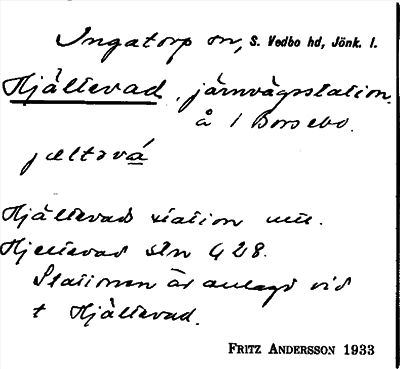 Ingatorp sn, S. Vedbo hd, Jönk. l.
Hjältevad, järnvägsstation.
å 1 Borsebo.
jæltəvá
Hjältevads station
Hjeltevad stn G 28.
Stationen är anlagd vid
t Hjältevad.
FRITZ ANDERSSON 1933